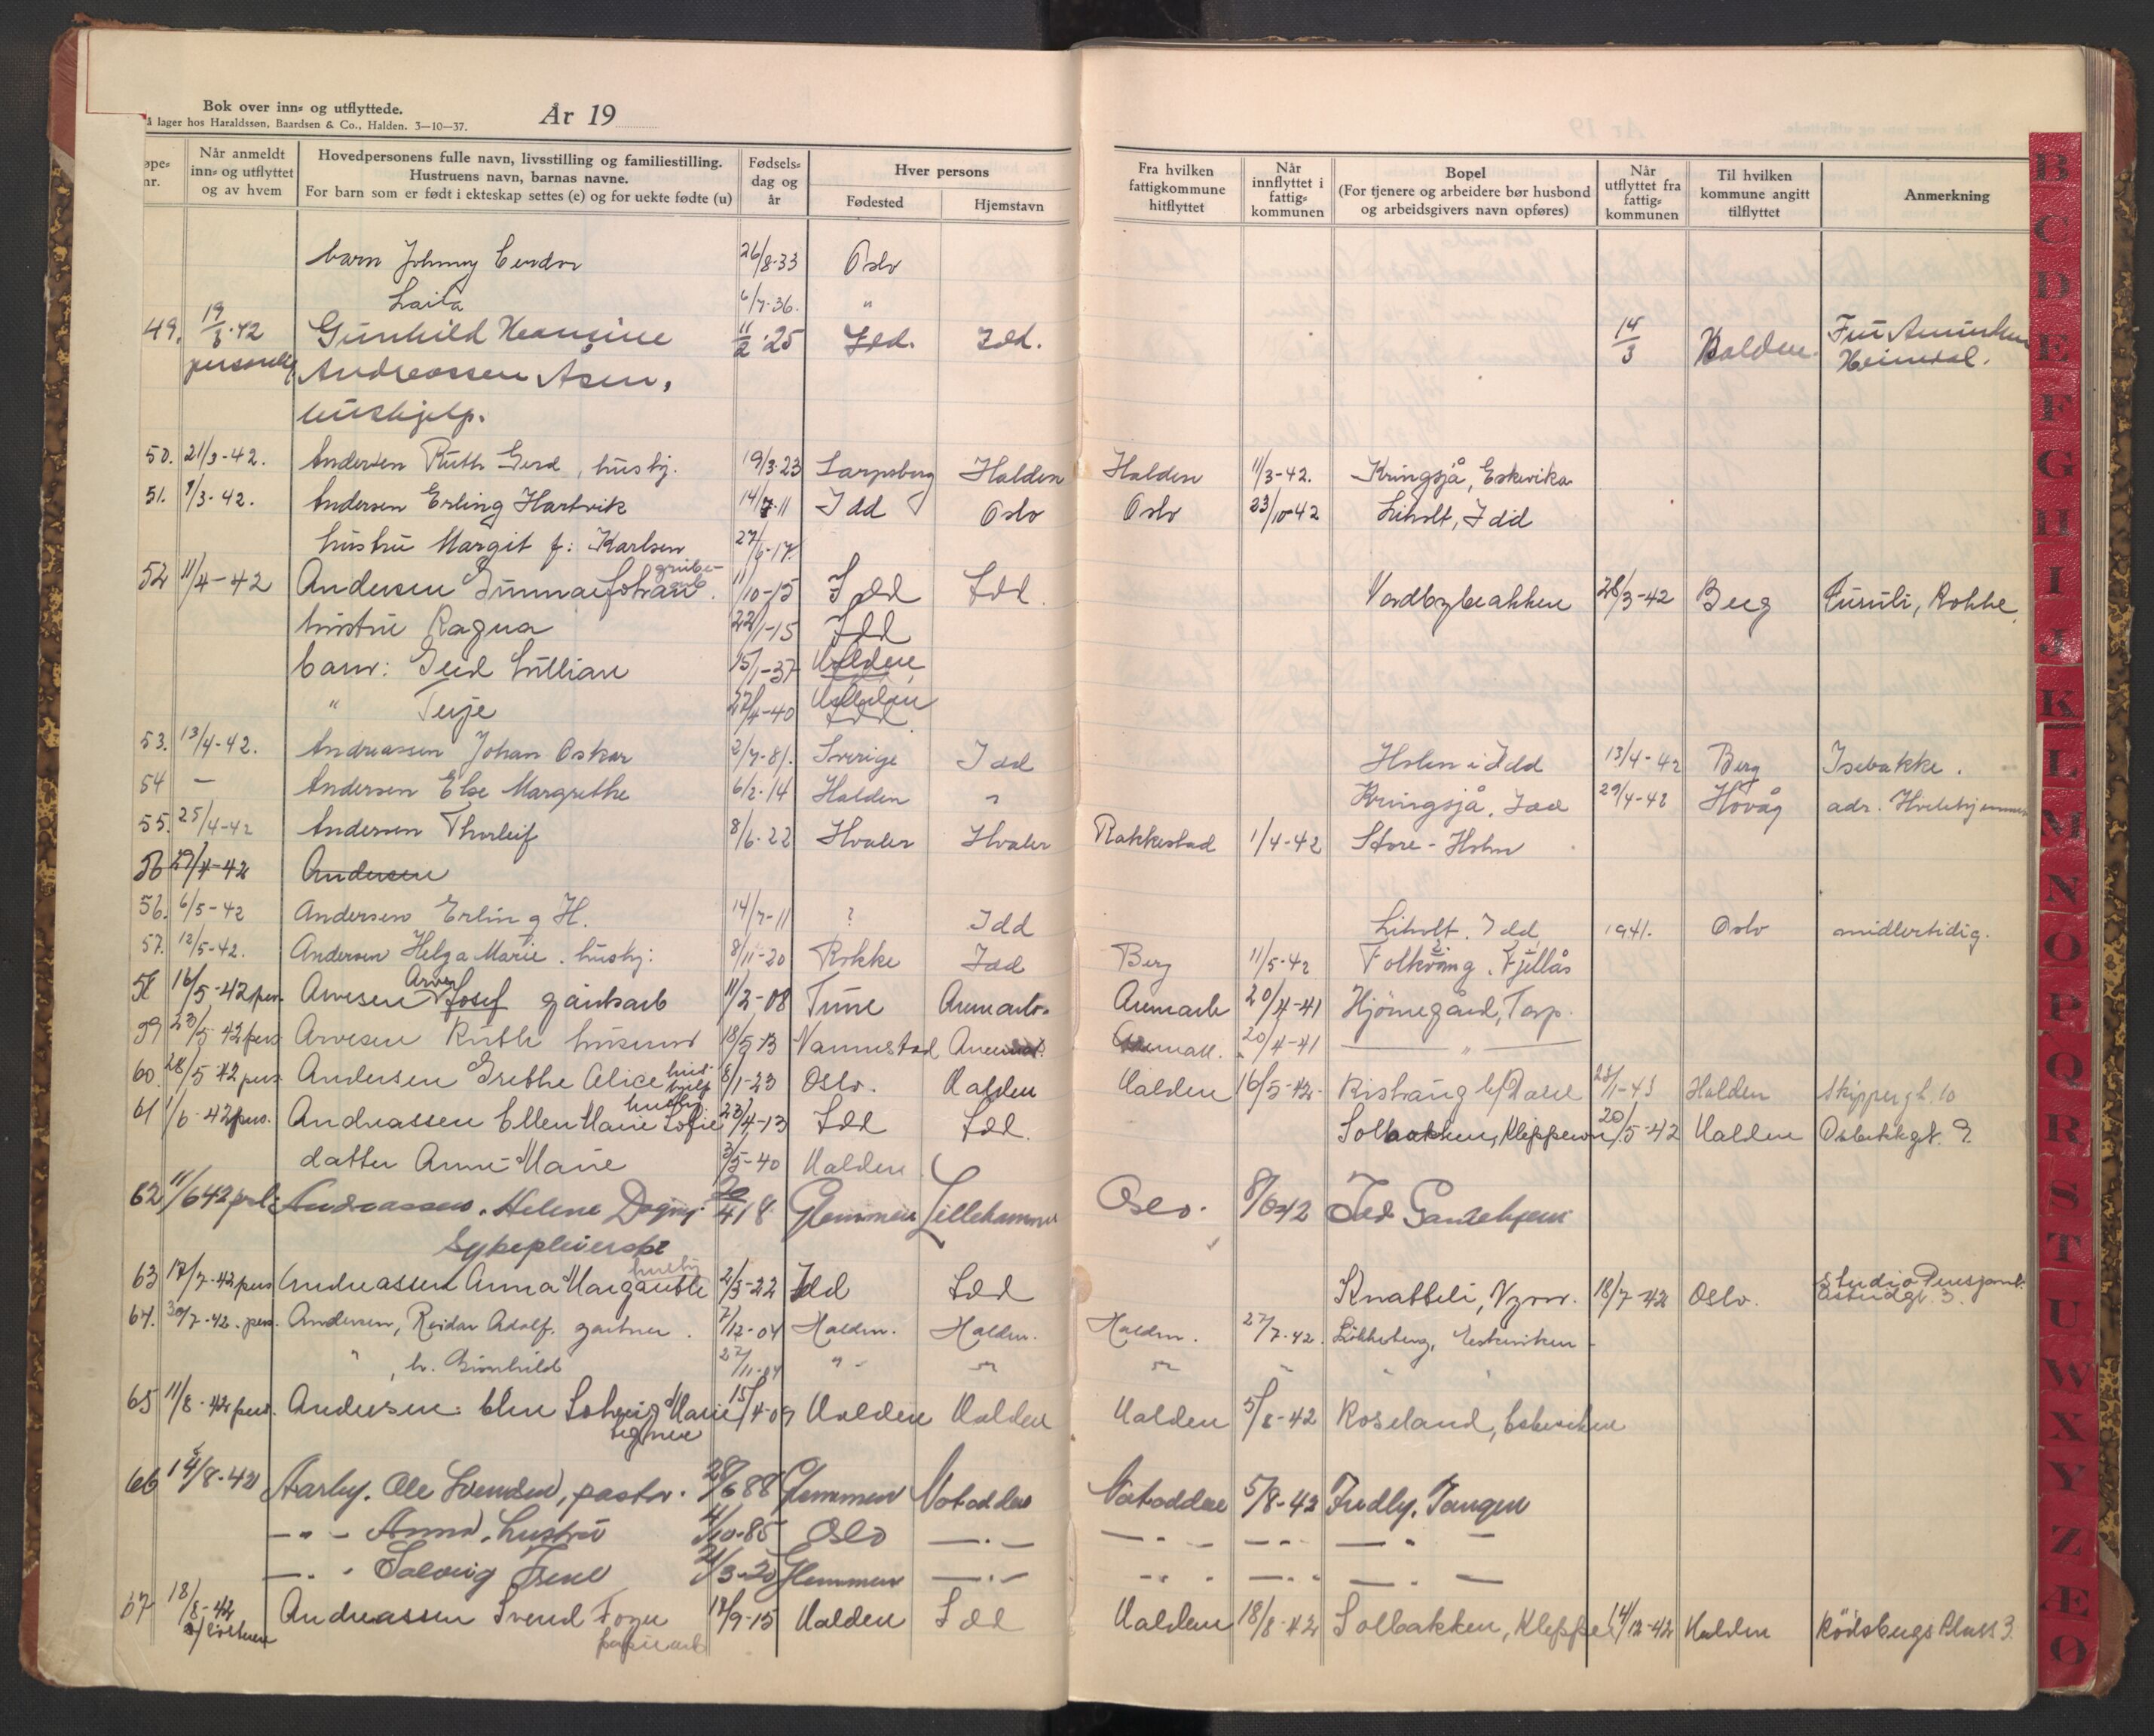 Bok over inn- og utflyttede.
å lager hos Haraldssøn, Baardsen & Co., Halden. 3—10—37.
År 19
øpe-nr. Når anmeldt inn- og utflyttet og av hvem Hovedpersonens fulle navn, livsstilling og familiestilling. Hustruens navn, barnas navne. For barn som er født i ekteskap settes (e) og for uekte fødte (u) Fødsels-dag og år Hver persons Fødested Hjemstavn Fra hvilken fattigkommune hitflyttet Når innflyttet i fattig-kommunen Bopel (For tjenere og arbeidere bør husbond og arbeidsgivers navn opføres) Når utflyttet fra fattig-kommunen Til hvilken kommune angitt tilflyttet Anmerkning
barn Johnny 26/8-33 Oslo
Laila 6/7-36. "
49. 19/3-42 Gunhild Hermine 11/2-25 Idd. Idd. 14/3 Halden. Fru
personlig Andreassen Åsen, Heimdal.
hushjelp.
50. 21/3-42. Andersen Ruth Gerd, hushj. 19/3-23 Sarpsborg Halden Halden 11/3-42. Kringsjå, Eskevika
51. 9/3-42. Andersen Erling Hartvik 14/7-11 Idd Oslo Oslo 23/10-42 Liholt, Idd
hustru Margit f: Karlsen 27/6-17.
52 11/4-42 Andersen Gunnar Johan grubearb. 11/10-15 Idd Idd. Nordbybakken 28/3-42 Berg Furuli, Rokke.
hustru Ragna 22/1-15 Idd
barn: Gerd Lillian 15/1-37 Halden
" Terje 27/4-40 Halden
53. 13/4-42. Andreassen Johan Oskar 2/7-81. Sverige Idd Holm i Idd 13/4-42 Berg Isebakke.
54 — Andersen Else Margrethe 6/2-14 Halden " Kringsjå, Idd 29/4-42 Høvåg adr. Hvilehjemmet
55. 25/4-42 Andersen Thorleif 8/6-22 Hvaler Hvaler Rakkestad 1/4-42 Store-Holm
56 27/4-42 Andersen
56. 6/5-42 Andersen Erling H. 14/7-11 ? Idd Liholt, Idd 1941. Oslo midlertidig.
57. 12/5-42. Andersen Helga Marie. hushj: 8/11-20 Rokke Idd Berg 11/5-42 Folkvang, Fjellås
58 16/5-42 pers. Arvesen Arve Josef gårdsarb 11/2-08 Tune Aremark. Aremark 20/4-41 Hjørnegård, Torp.
59 23/5-42 pers Arvesen Ruth husmor 18/5-13 Vannestad Aremark. Aremark. 20/4-41 — " —
60. 28/5-42 pers Andersen Grethe Alice hushjelp 8/1-23 Oslo. Halden Halden 16/5-42- 28/1-43 Halden Skippergt. 10
61 1/6-42 pers. Andreassen Ellen Marie Sofie hushj 23/4-13 Idd Idd. Solbakken, Kleppern 20/5-42 Halden 9
datter Anne-Marie 3/5-40 Halden
62 11/6 42 Andreassen. Helene Dagny 20/4 18 Glemmen Lillehammer Oslo. 8/6-42 Idd Gamlehjem
Sykepleierske
63 17/7-42 pers Andreassen Anna Margarethe hushj 2/3-22 Idd Idd Knatteli, 18/7-42 Oslo. Studio Pensjonat. 3.
64. 30/7-42. pers. Andersen, Reidar Adolf. gartner. 7/12-04 Halden. Halden. Halden. 27/7-42. Eskeviken
" , h. Gunhild 27/11-04 " " " "
65 11/8-42 pers. Andersen: Elen Solveig Marie 15/4-09 Halden Halden Halden 5/8-42 Roseland, Eskeviken
66 14/8-42 Aarby. Ole Svendsen, pastor. 28/6 88 Glemmen Notodden Notodden 5/8-42 Fredly. Tangen
—"— Anna, hustru 4/10-85 Oslo —"— —"— —"— —"—
—"— Solveig 21/3-20 Glemmen —"— —"— —"— —"—
67 18/8-42 Andreassen Svend 19/9-15 Halden Idd Halden 18/8-42 Solbakken, Klepper 14/12-42 Halden Rødsbergs Plass 3.
papirarb
B
C
D
E
F
G
H
I
J
K
L
M
N
O
P
Q
R
S
T
U
W
X
Y
Z
Æ
Ø